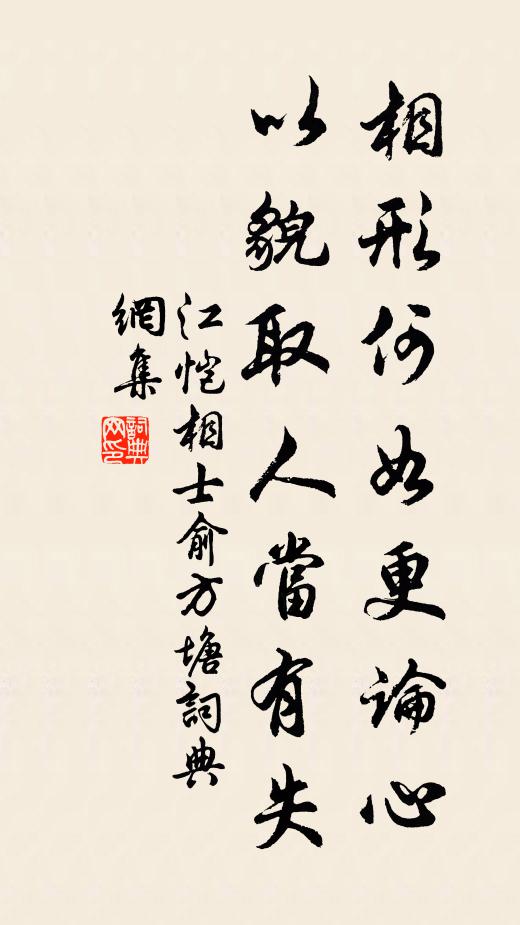 相形何如更論心
以貌取人當有失
江恺相士俞方塘詞典
網集
詞典
网印